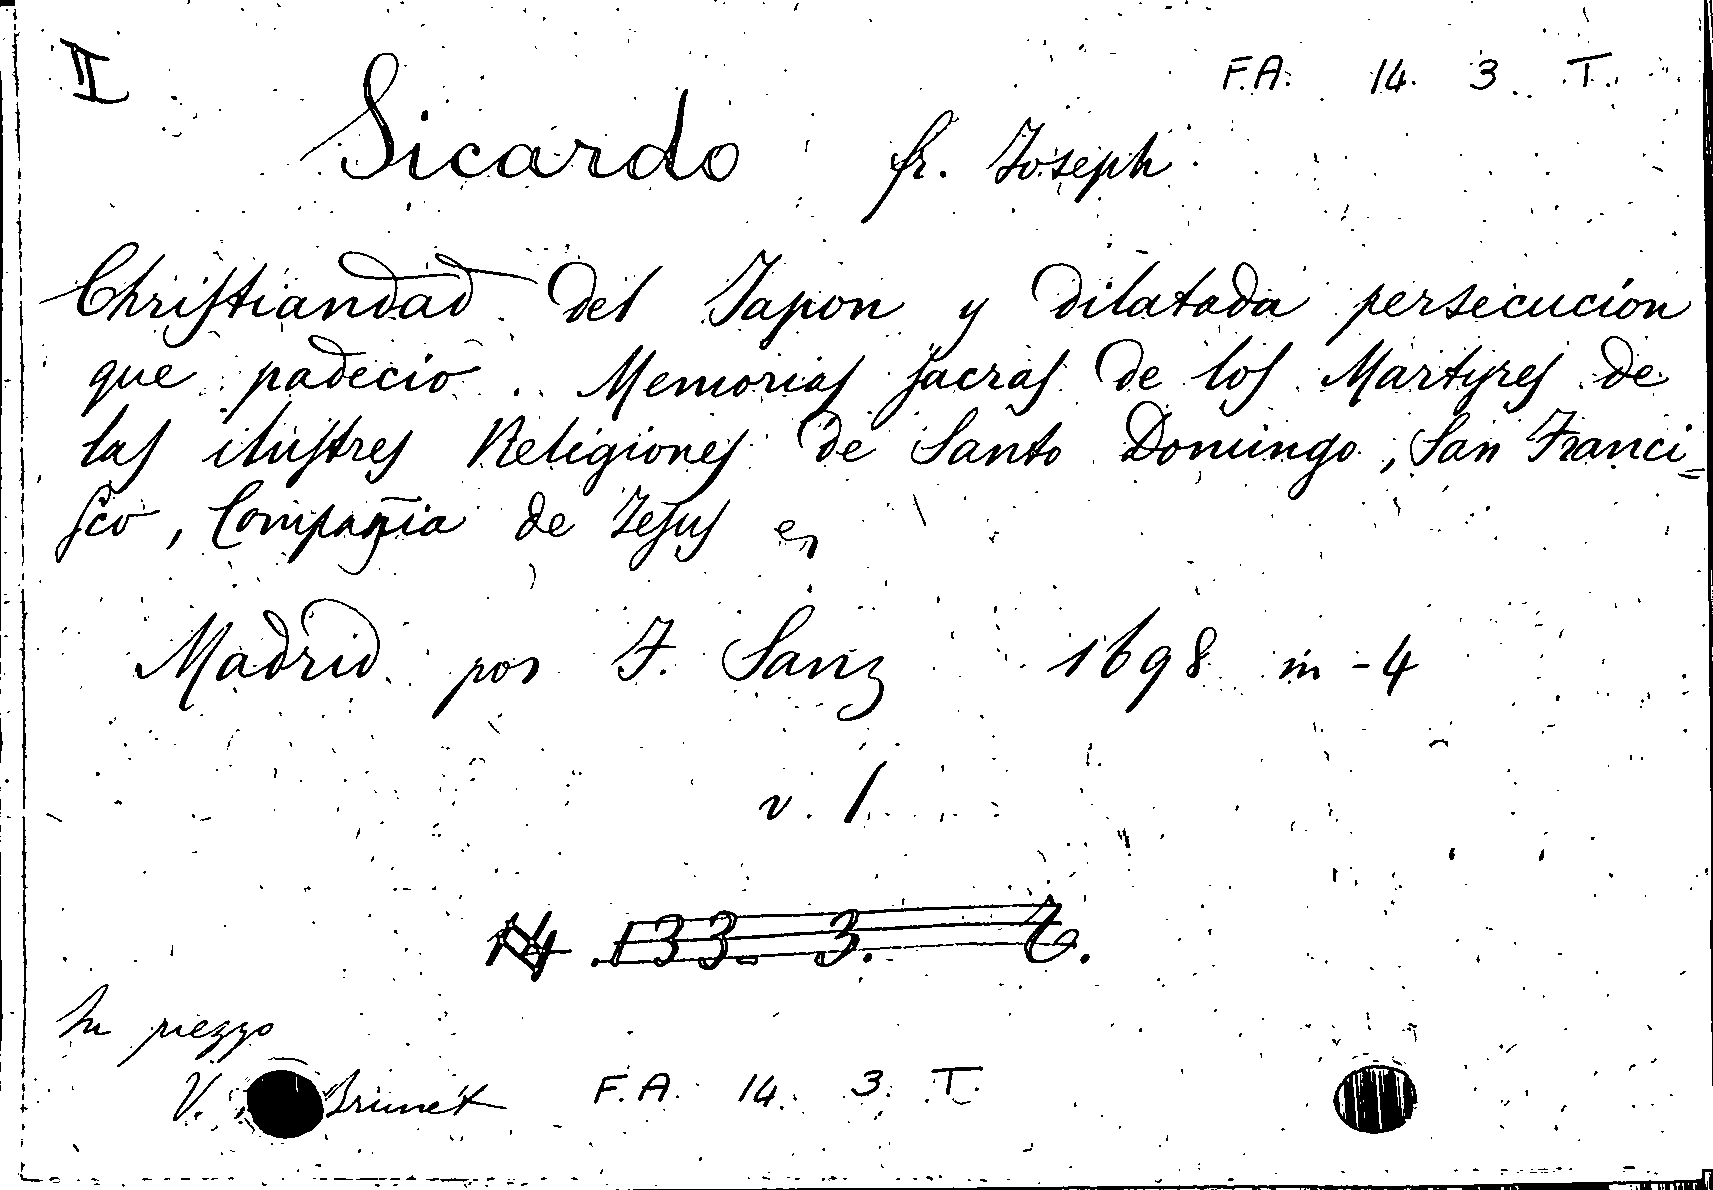 II
F.A. 14. 3. T.
Sicardo fr. Joseph
Christiandad del Japon y dilatada persecucion
que padecio. Memorias sacras de los Martyres de
las ilustres Religiones de Santo Domingo, San Franci=
sco, Compañia de Jesus
Madrid por F. Sanz 1698 in-4
v. 1
133. 3.
prezzo
V. Brunet F.A. 14. 3. T.